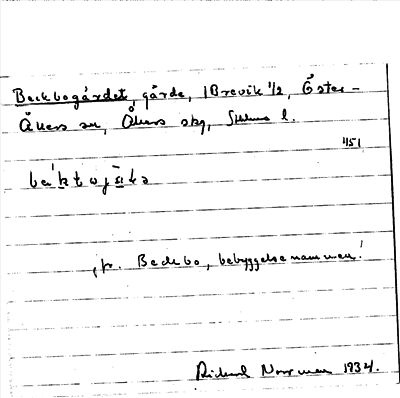 Beckbogärdet, gärde, 1 Brevik 1/2, Öster-
Åkers sn, Åkers skg, Sthlms l.
451
jr. Beckbo, bebyggelsenamnen!
Rickard Norrman 1934.